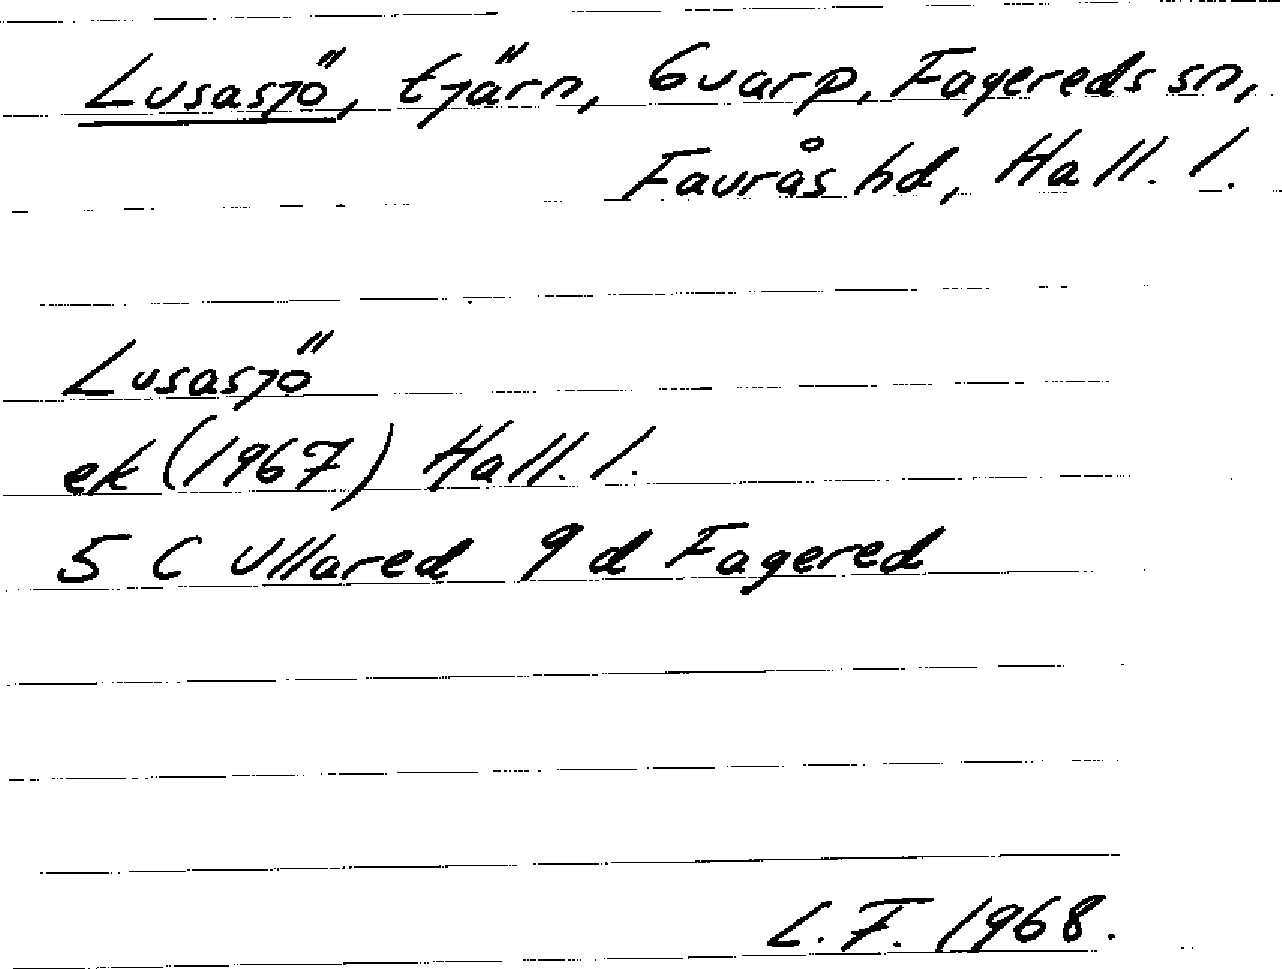 Lusasjö, tjärn, Gvarp, Fagereds sn,
Faurås hd, Hall. l.
Lusasjö
ek (1967) Hall. l.
5 C Ullared 9 d Fagered
L.F. 1968.